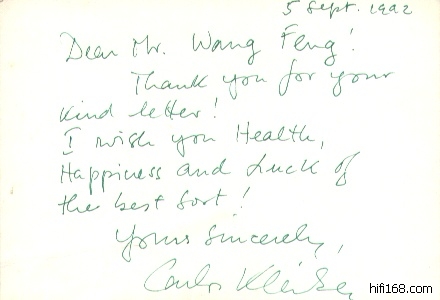 5 Sept. 1992
Dear Mr. Wang Feng!
Thank you for your
kind letter!
I wish you Health,
Happiness and Luck of
the best sort!
Yours sincerely,
Carlos Kleiber
hifi168.com